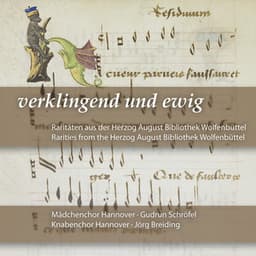 Residuum
cueur parcus faulsaret
verklingend und ewig
Raritäten aus der Herzog August Bibliothek Wolfenbüttel
Rarities from the Herzog August Bibliothek Wolfenbüttel
Que de
Mädchenchor Hannover · Gudrun Schröfel
Knabenchor Hannover · Jörg Breiding